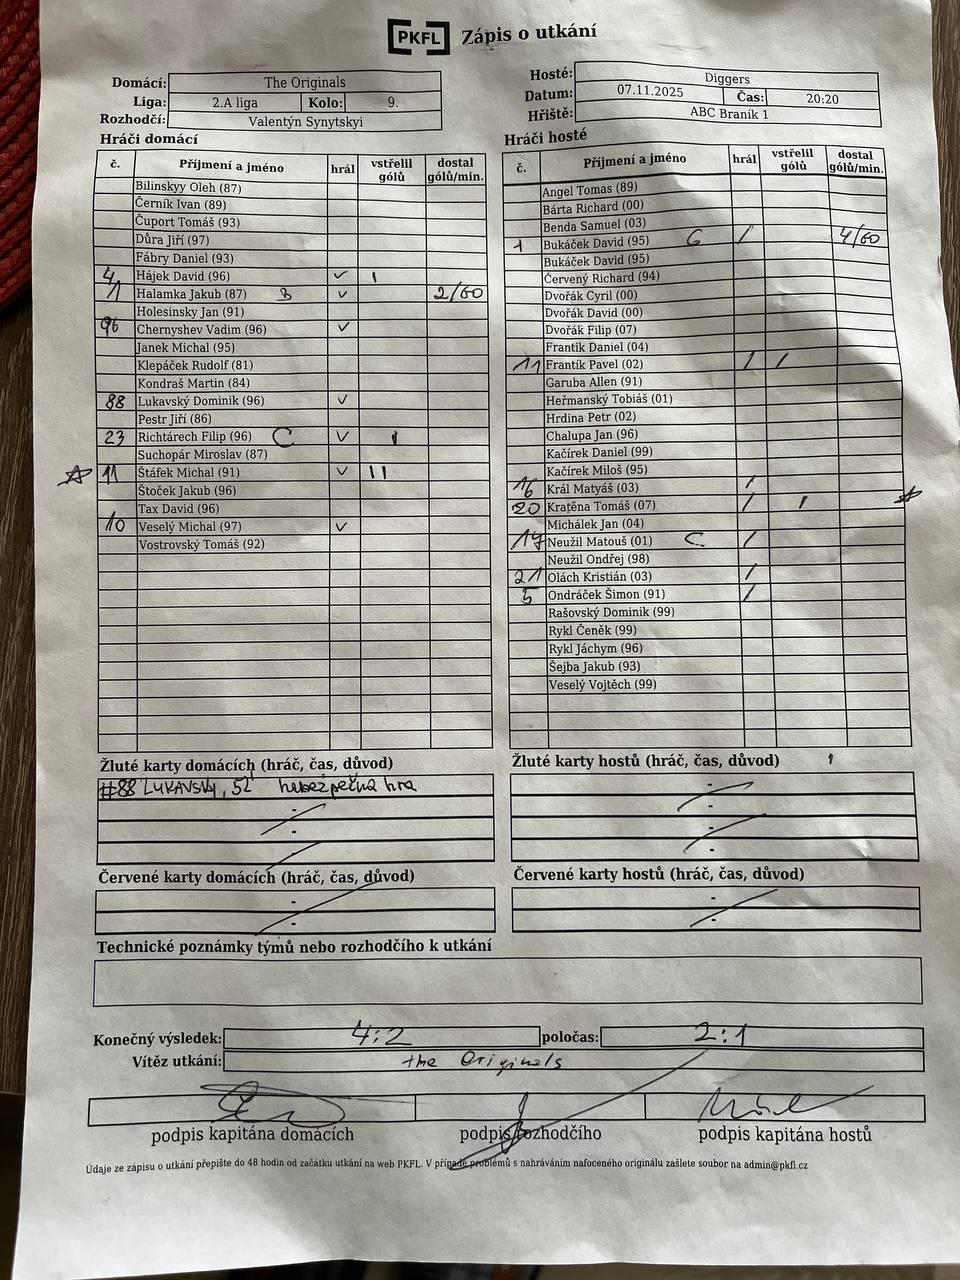 PKFL Zápis o utkání
Domácí: The Originals
Liga: 2.A liga Kolo: 9.
Rozhodčí: Valentýn Synytskyi
Hosté: Diggers
Datum: 07.11.2025 Čas: 20:20
Hřiště: ABC Braník 1
Hráči domácí
č. Příjmení a jméno hrál vstřelil gólů dostal gólů/min.
Bilinskyy Oleh (87)
Černík Ivan (89)
Čuport Tomáš (93)
Důra Jiří (97)
Fábry Daniel (93)
4 Hájek David (96) ✓ |
Halamka Jakub (87) B ✓ 2/60
Holesinsky Jan (91)
96 Chernyshev Vadim (96) ✓
Janek Michal (95)
Klepáček Rudolf (81)
Kondraš Martin (84)
88 Lukavský Dominik (96) ✓
Pestr Jiří (86)
23 Richtárech Filip (96) C ✓ |
Suchopár Miroslav (87)
☆ 11 Štáfek Michal (91) ✓ ||
Štoček Jakub (96)
Tax David (96)
10 Veselý Michal (97) ✓
Vostrovský Tomáš (92)
Hráči hosté
č. Příjmení a jméno hrál vstřelil gólů dostal gólů/min.
Angel Tomas (89)
Bárta Richard (00)
Benda Samuel (03)
1 Bukáček David (95) G / 4/60
Bukáček David (95)
Červený Richard (94)
Dvořák Cyril (00)
Dvořák David (00)
Dvořák Filip (07)
Frantik Daniel (04)
11 Frantík Pavel (02) / /
Garuba Allen (91)
Heřmanský Tobiáš (01)
Hrdina Petr (02)
Chalupa Jan (96)
Kačírek Daniel (99)
Kačírek Miloš (95)
16 Král Matyáš (03) /
20 Kratěna Tomáš (07) / / ☆
Michálek Jan (04)
Neužil Matouš (01) C /
Neužil Ondřej (98)
21 Olách Kristián (03) /
5 Ondráček Šimon (91) /
Rašovský Dominik (99)
Rykl Čeněk (99)
Rykl Jáchym (96)
Šejba Jakub (93)
Veselý Vojtěch (99)
Žluté karty domácích (hráč, čas, důvod)
#88 LUKAVSKÝ, 52' nebezpečná hra
-
-
Žluté karty hostů (hráč, čas, důvod)
-
-
-
Červené karty domácích (hráč, čas, důvod)
-
-
Červené karty hostů (hráč, čas, důvod)
-
-
Technické poznámky týmů nebo rozhodčího k utkání
Konečný výsledek: 4:2 poločas: 2:1
Vítěz utkání: the Originals
podpis kapitána domácích podpis rozhodčího podpis kapitána hostů
Údaje ze zápisu o utkání přepište do 48 hodin od začátku utkání na web PKFL. V případě problémů s nahráváním nafoceného originálu zašlete soubor na admin@pkfl.cz